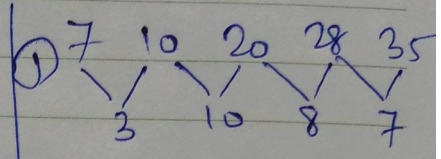 ① 7 10 20 28 35
3 10 8 7